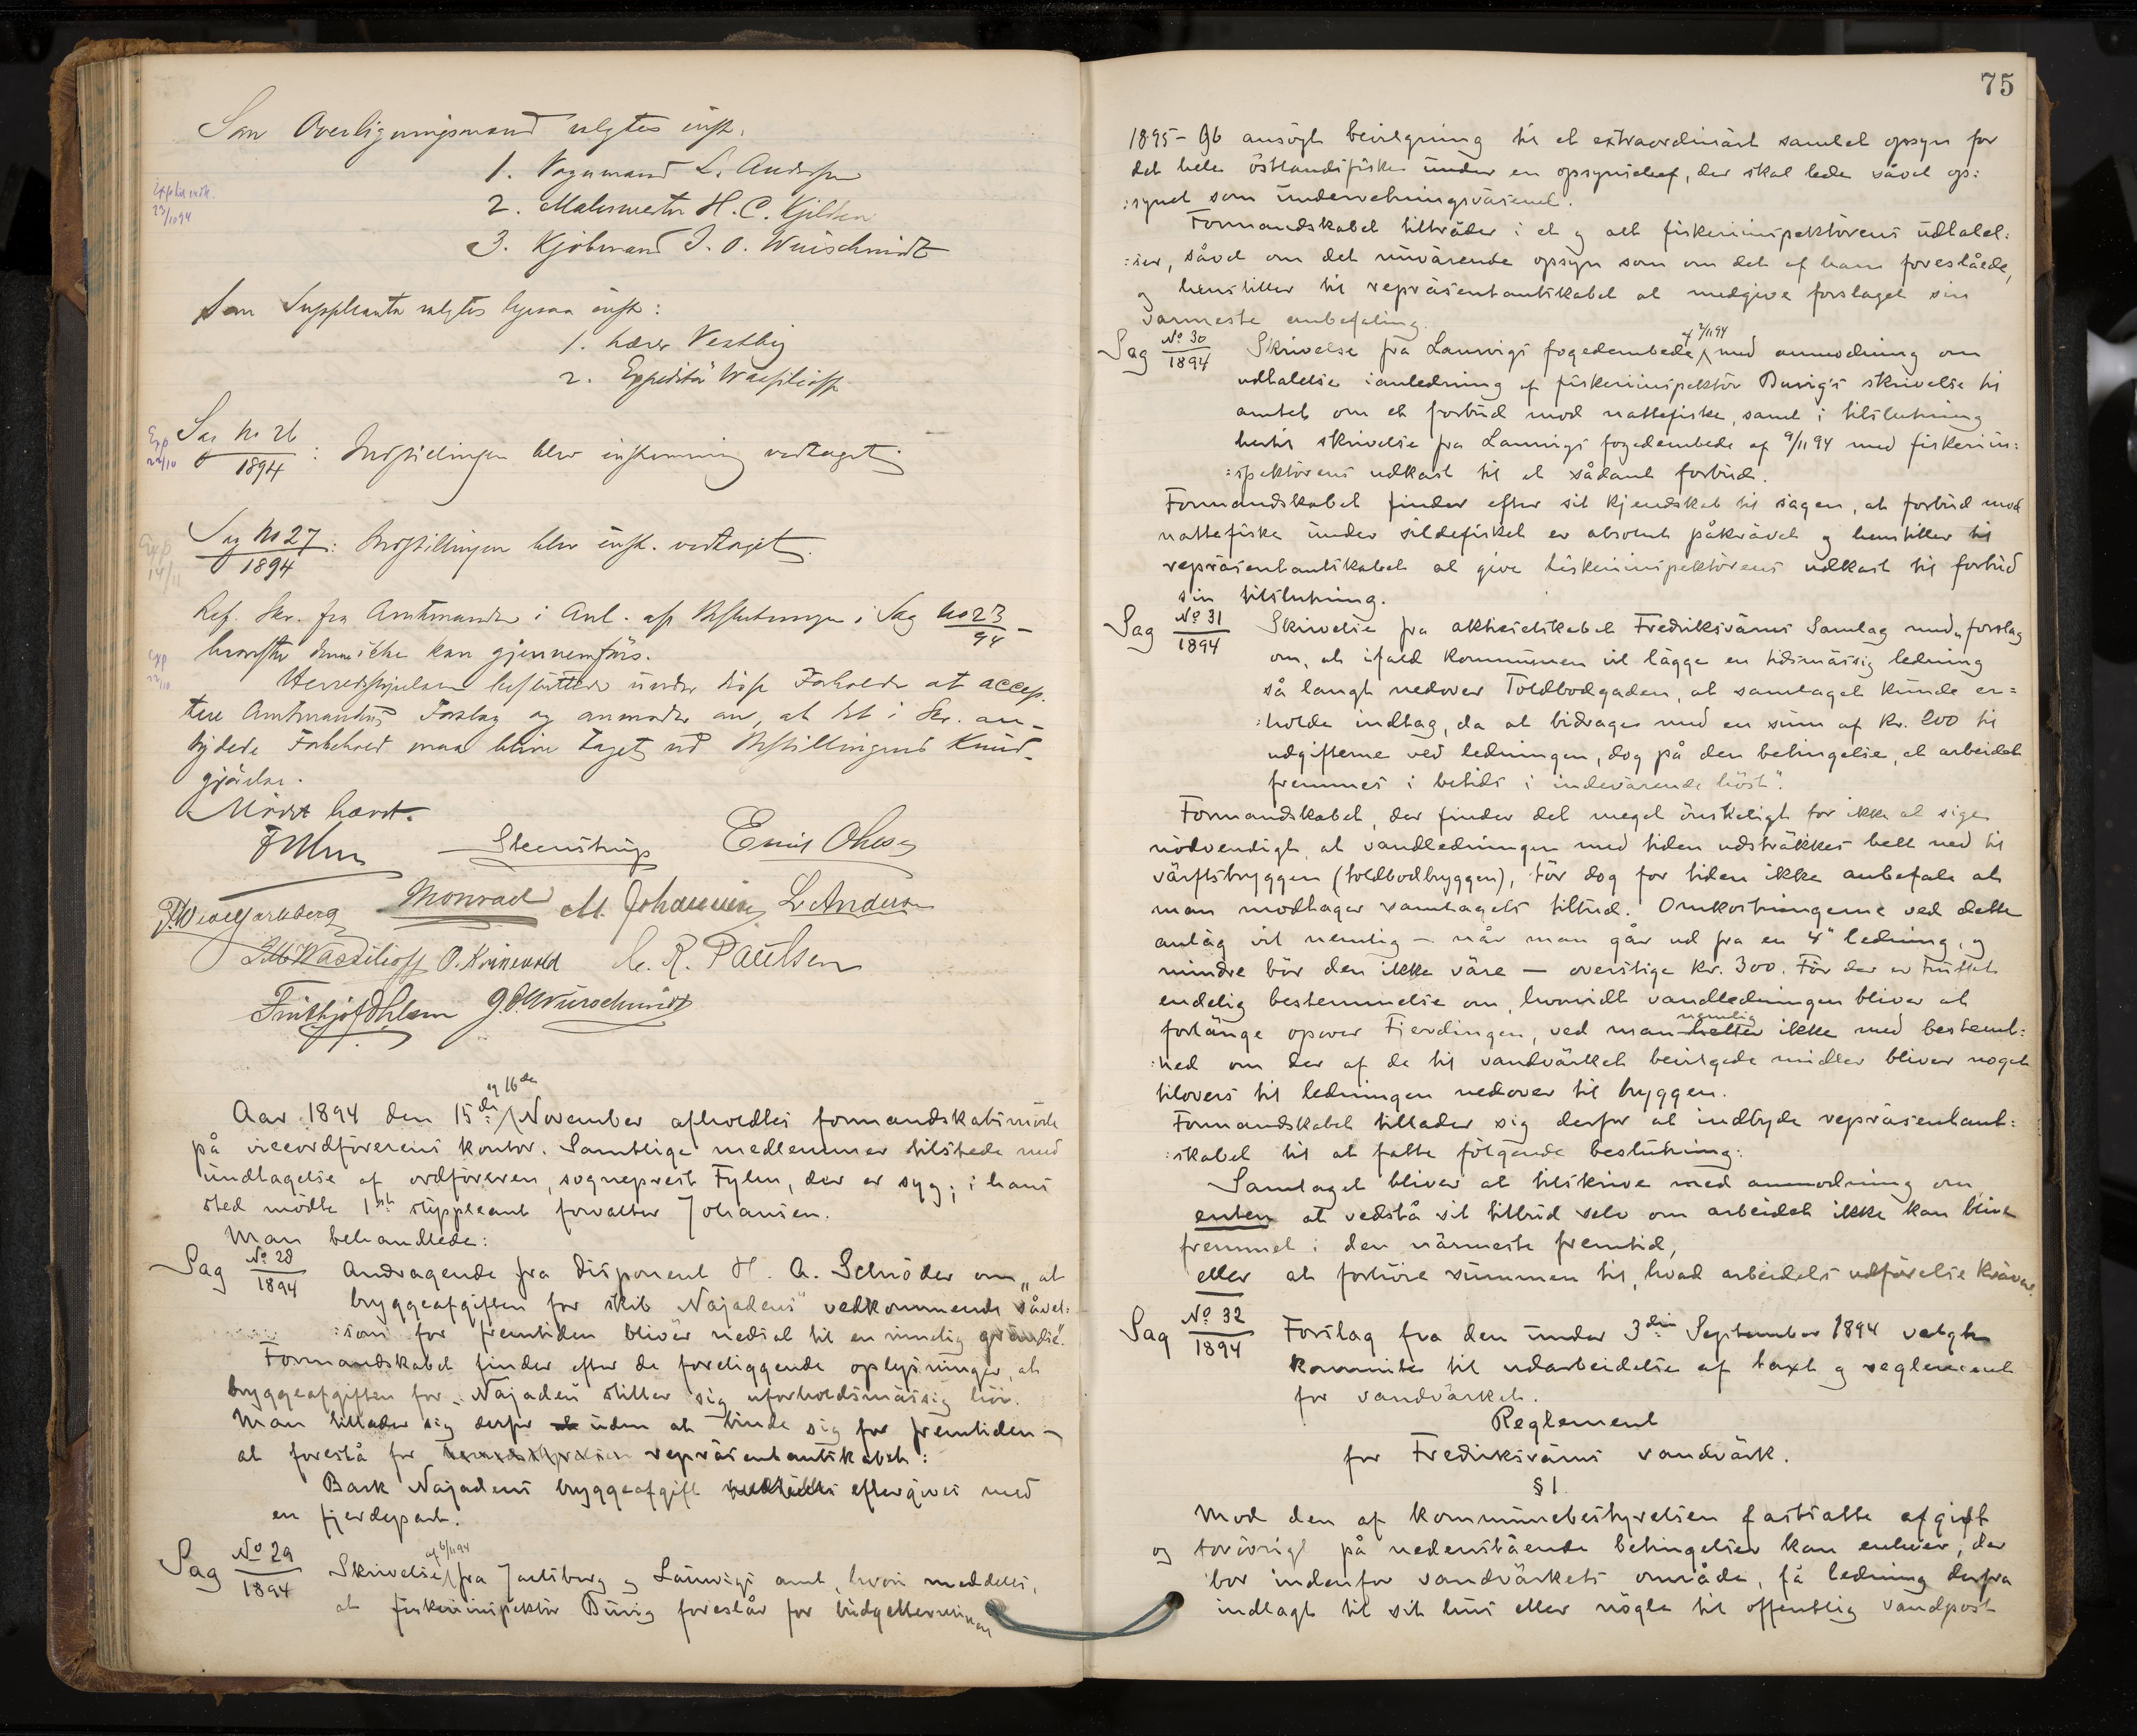 Som Overligningsmænd valgtes enst.
1. Vognmand L. Andersen
2. Malermester H. C. Kjilsen
3. Kjøbmand J. O. Wurschmidt
Exp
23/11 94
Som Suppleanter valgtes ligesaa enst:
1. Lærer Vestby
2. Expeditør Wassilioff
Exp
22/10
Sag No 26
1894 : Indstillingen blev enstemmig vedtaget.
Exp
14/11
Sag No 27
1894 : Indstillingen blev enst. vedtaget.
Ref. Skr. fra Amtmanden i Anl. af Beslutningen i Sag No 23
94 –
hvorefter denne ikke kan gjennemføres.
Exp
22/10
Herredsstyrelsen besluttede under disse Forholde at accep-
tere Amtmandens Forslag og anmoder om, at det i Skr. an-
tydede Forbehold maa blive taget ved Bestillingens Kund-
gjørelse.
Mødet hævet.
Fylm Steenstrup Emil Olsen
Monrad M. Johannesen L. Andersen
Wassilioff O. Krinevold C. R. Paulsen
Frithjof Ohlsen J. O. Wurschmidt
og 16de
Aar 1894 den 15de November afholdtes formandskabsmöde
på viceordförerens kontor. Samtlige medlemmer tilstede med
undtagelse af ordföreren, sogneprest Fylm, der er syg; i hans
sted mödte 1ste suppleant forvalter Johansen.
Man behandlede:
Sag No 28
1894 Andragende fra disponent H. A. Schröder om „at
bryggeafgiften for skib „Najadens“ vedkommende såvel:
:som for fremtiden bliver nedsat til en rimelig grændse“.
Formandskabet finder efter de foreliggende oplysninger, at
bryggeafgiften for „Najaden“ stiller sig uforholdsmässig höi.
Man tillader sig derfor uden at binde sig for fremtiden –
at foreslå for repräsentantskabet:
Bark Najadens bryggeafgift eftergives med
en fjerdepart.
Sag No 29
1894 Skrivelse af 6/11 94 fra Jarlsberg og Laurvigs amt, hvori meddeles,
at fiskeriinspektör Buvig foreslår for budgetterminen
75
1895-96 ansögt bevilgning til et extraordinärt samlet opsyn for
det hele östlandsfiske under en opsynschef, der skal lede såvel op:
:synet som undervetningsväsenet.
Formandskabet tilträder i et og alt fiskeriinspektörens udtalel:
:ser, såvel om det nuvärende opsyn som om det af ham foreslåede,
og henstiller til repräsentantskabet at medgive forslaget sin
varmeste anbefaling.
Sag No 30
1894 Skrivelse fra Laurvigs fogedembede af 2/11 94 med anmodning om
udtalelse i anledning af fiskeriinspektör Buvig's skrivelse til
amtet om et forbud mod nattefiske, samt i tilslutning
hertil skrivelse fra Laurvigs fogedembede af 9/11 94 med fiskeriin:
:spektörens udkast til et sådant forbud.
Formandskabet finder efter sit kjendskab til sagen, at forbud mod
nattefiske under sildefisket er absolut påkrävet og henstiller til
repräsentantskabet at give fiskeriinspektörens udkast til forbud
sin tilslutning.
Sag No 31
1894 Skrivelse fra aktieselskabet Fredriksväms Samlag med „forslag
om, at ifald kommunen vil lägge en tidsmässig ledning
så langt nedover Toldbodgaden, at samlaget kunde er=
:holde indtag, da at bidrages med en sum af kr. 200 til
udgifterne ved ledningen, dog på den betingelse, at arbeidet
fremmes i betids i indevärende höst“.
Formandskabet, der finder det meget önskeligt for ikke at sige
nödvendigt, at vandledningen med tiden udsträkkes helt ned til
värftsbryggen (toldbodbryggen), tör dog for tiden ikke anbefale at
man modtager samlagets tilbud. Omkostningerne ved dette
anläg vil nemlig – når man går ud fra en 4" ledning, og
mindre bör den ikke väre – overstige kr. 300. För der er truffet
endelig bestemmelse om, hvorvidt vandledningen bliver at
forlänge opover Fjerdingen, ved man nemlig heller ikke med bestemt:
:hed om der af de til vandvärket bevilgede midler bliver noget
tilovers til ledningen nedover til bryggen.
Formandskabet tillader sig derfor at indbyde repräsentant:
:skabet til at fatte fölgende beslutning:
Samlaget bliver at tilskrive med anmodning om
enten at vedstå sit tilbud selv om arbeidet ikke kan blive
fremmet i den närmeste fremtid,
eller at forhöie summen til, hvad arbeidets udförelse kräver.
Sag No 32
1894 Forslag fra den under 3die September 1894 valgte
komite til udarbeidelse af taxt og reglement
for vandvärket.
Reglement
for Fredriksväms vandvärk.
§ 1
Mod den af kommunebestyrelsen fastsatte afgift
og forövrigt på nedenstående betingelser kan enhver, der
bor indenfor vandvärkets område, få ledning derfra
indlagt til sit hus eller nögle til offentlig vandpost